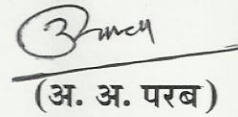 (अ. अ. परब)